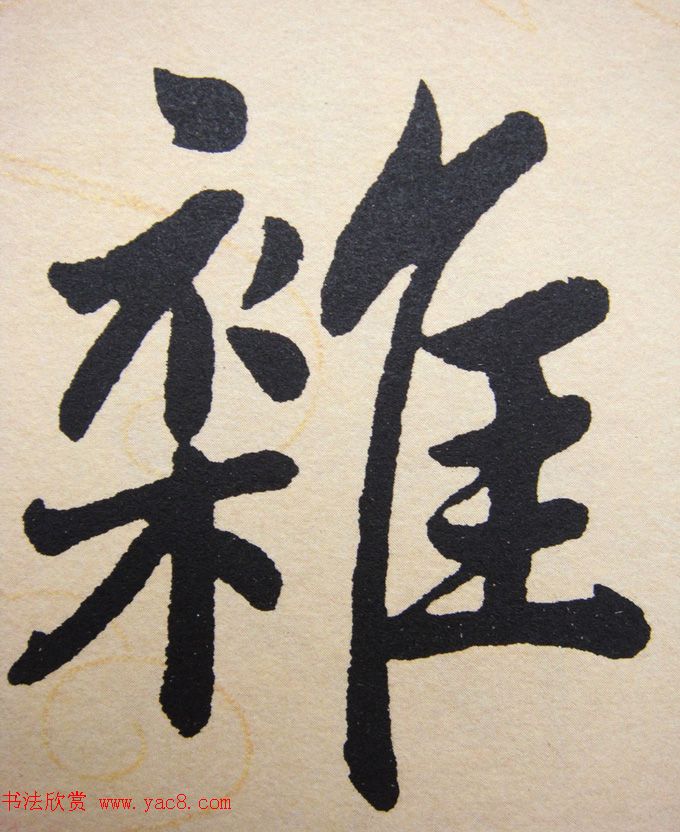 雜
书法欣赏 www.yac8.com